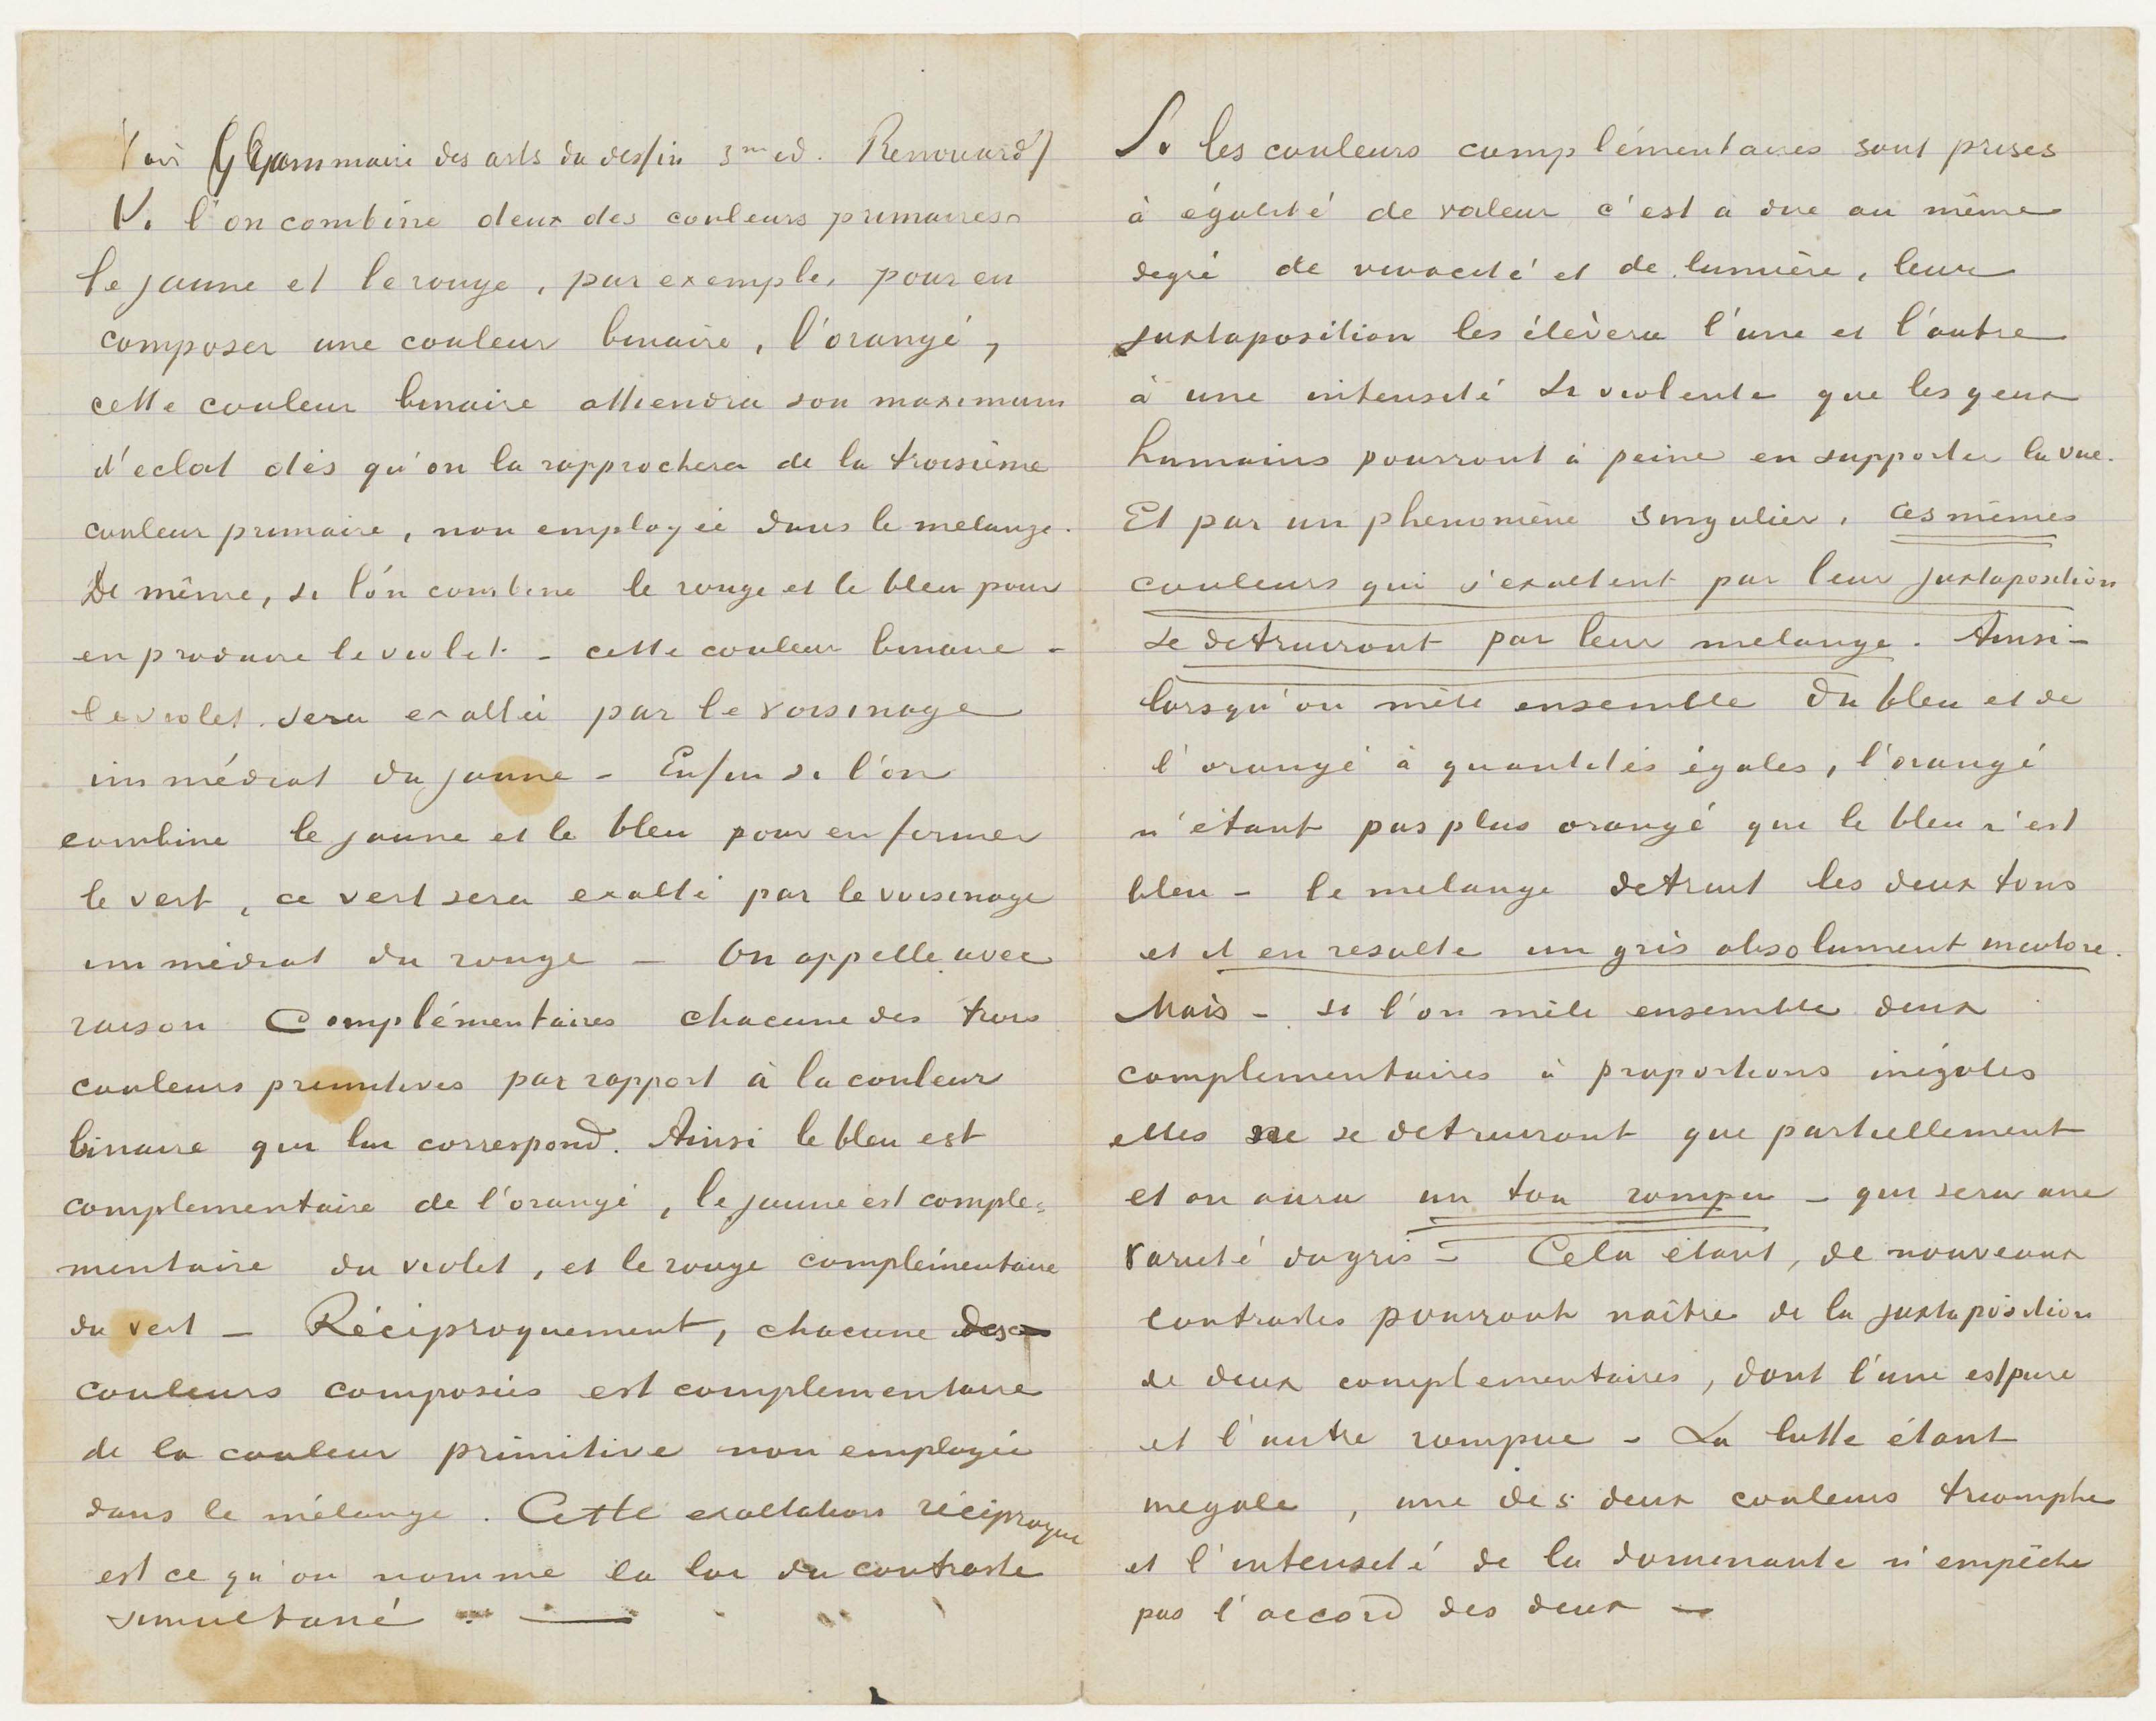 Voir (Grammaire des arts du dessin 3me ed. Renouard)
Si l'on combine deux des couleurs primaires
le jaune et le rouge, par exemple, pour en
composer une couleur binaire, l'orangé,
cette couleur binaire attiendra son maximum
d'eclat dès qu'on la rapprochera de la troisième
couleur primaire, non employée dans le melange.
De même, si l'on combine le rouge et le bleu pour
en produire le violet - cette couleur binaire -
le violet sera exaltée par le voisinage
immédiat du jaune - Enfin si l'on
combine le jaune et le bleu pour en former
le vert, ce vert sera exalté par le voisinage
immédiat du rouge - On appelle avec
raison Complémentaires chacune des trois
couleurs primitives par rapport à la couleur
binaire qui lui correspond. Ainsi le bleu est
complementaire de l'orangé, le jaune est comple=
mentaire du violet, et le rouge complémentaire
du vert - Réciproquement, chacune des
couleurs composées est complementaire
de la couleur primitive non employée
dans le mélange. Cette exaltation réciproque
est ce qu'on nomme la loi du contraste
simultané -
Si les couleurs complémentaires sont prises
à égalité de valeur c'est à dire au même
degré de vivacité et de lumière, leur
juxtaposition les élèvera l'une et l'autre
à une intensité si violente que les yeux
humains pourront à peine en supporter la vue.
Et par un phenomène singulier, ces mêmes
couleurs qui s'exaltent par leur juxtaposition
se detruiront par leur melange. Ainsi -
lorsqu'on mêle ensemble du bleu et de
l'orangé à quantités égales, l'orangé
n'étant pas plus orangé que le bleu n'est
bleu - le melange detruit les deux tons
et il en resulte un gris absolument incolore.
Mais - si l'on mêle ensemble deux
complementaires à proportions inégales
elles ne se detruiront que partiellement
et on aura un ton rompu - qui sera une
varieté du gris - Cela étant, de nouveaux
contrastes pourront naître de la juxtaposition
de deux complementaires, dont l'une est pure
et l'autre rompue - La lutte étant
inegale, une des deux couleurs triomphe
et l'intensité de la dominante n'empêche
pas l'accord des deux -